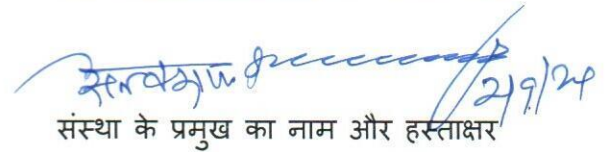 2/9/24
संस्था के प्रमुख का नाम और हस्ताक्षर